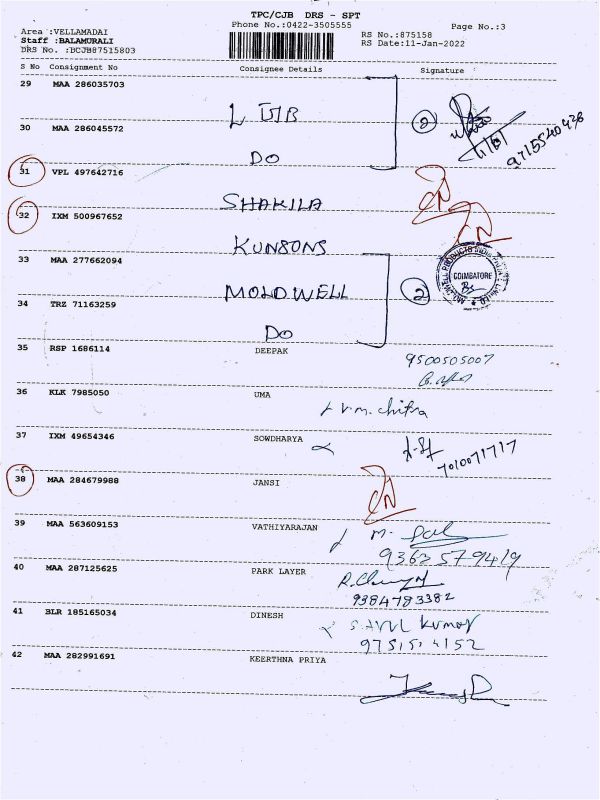 TPC/CJB DRS - SPT
Phone No.:0422-3505555
Page No.:3
Area :VELLAMADAI
Staff :BALAMURALI
DRS No. :BCJB87515803
RS No.:875158
RS Date:11-Jan-2022
S No Consignment No Consignee Details Signature
29 MAA 286035703
30 MAA 286045572 DO
2
9715540428
31 VPL 497642716 SHAKILA
32 IXM 500967652 KUNSONS
33 MAA 277662094 MOLDWELL
2
COIMBATORE
34 TRZ 71163259 DO
35 RSP 1686114 DEEPAK
9500505007
36 KLK 7985050 UMA
V.M. Chitra
37 IXM 49654346 SOWDHARYA
7010071717
38 MAA 284679988 JANSI
39 MAA 563609153 VATHIYARAJAN
9363579419
40 MAA 287125625 PARK LAYER
9384783382
41 BLR 185165034 DINESH
S. Arul Kumar
9751514152
42 MAA 282991691 KEERTHNA PRIYA